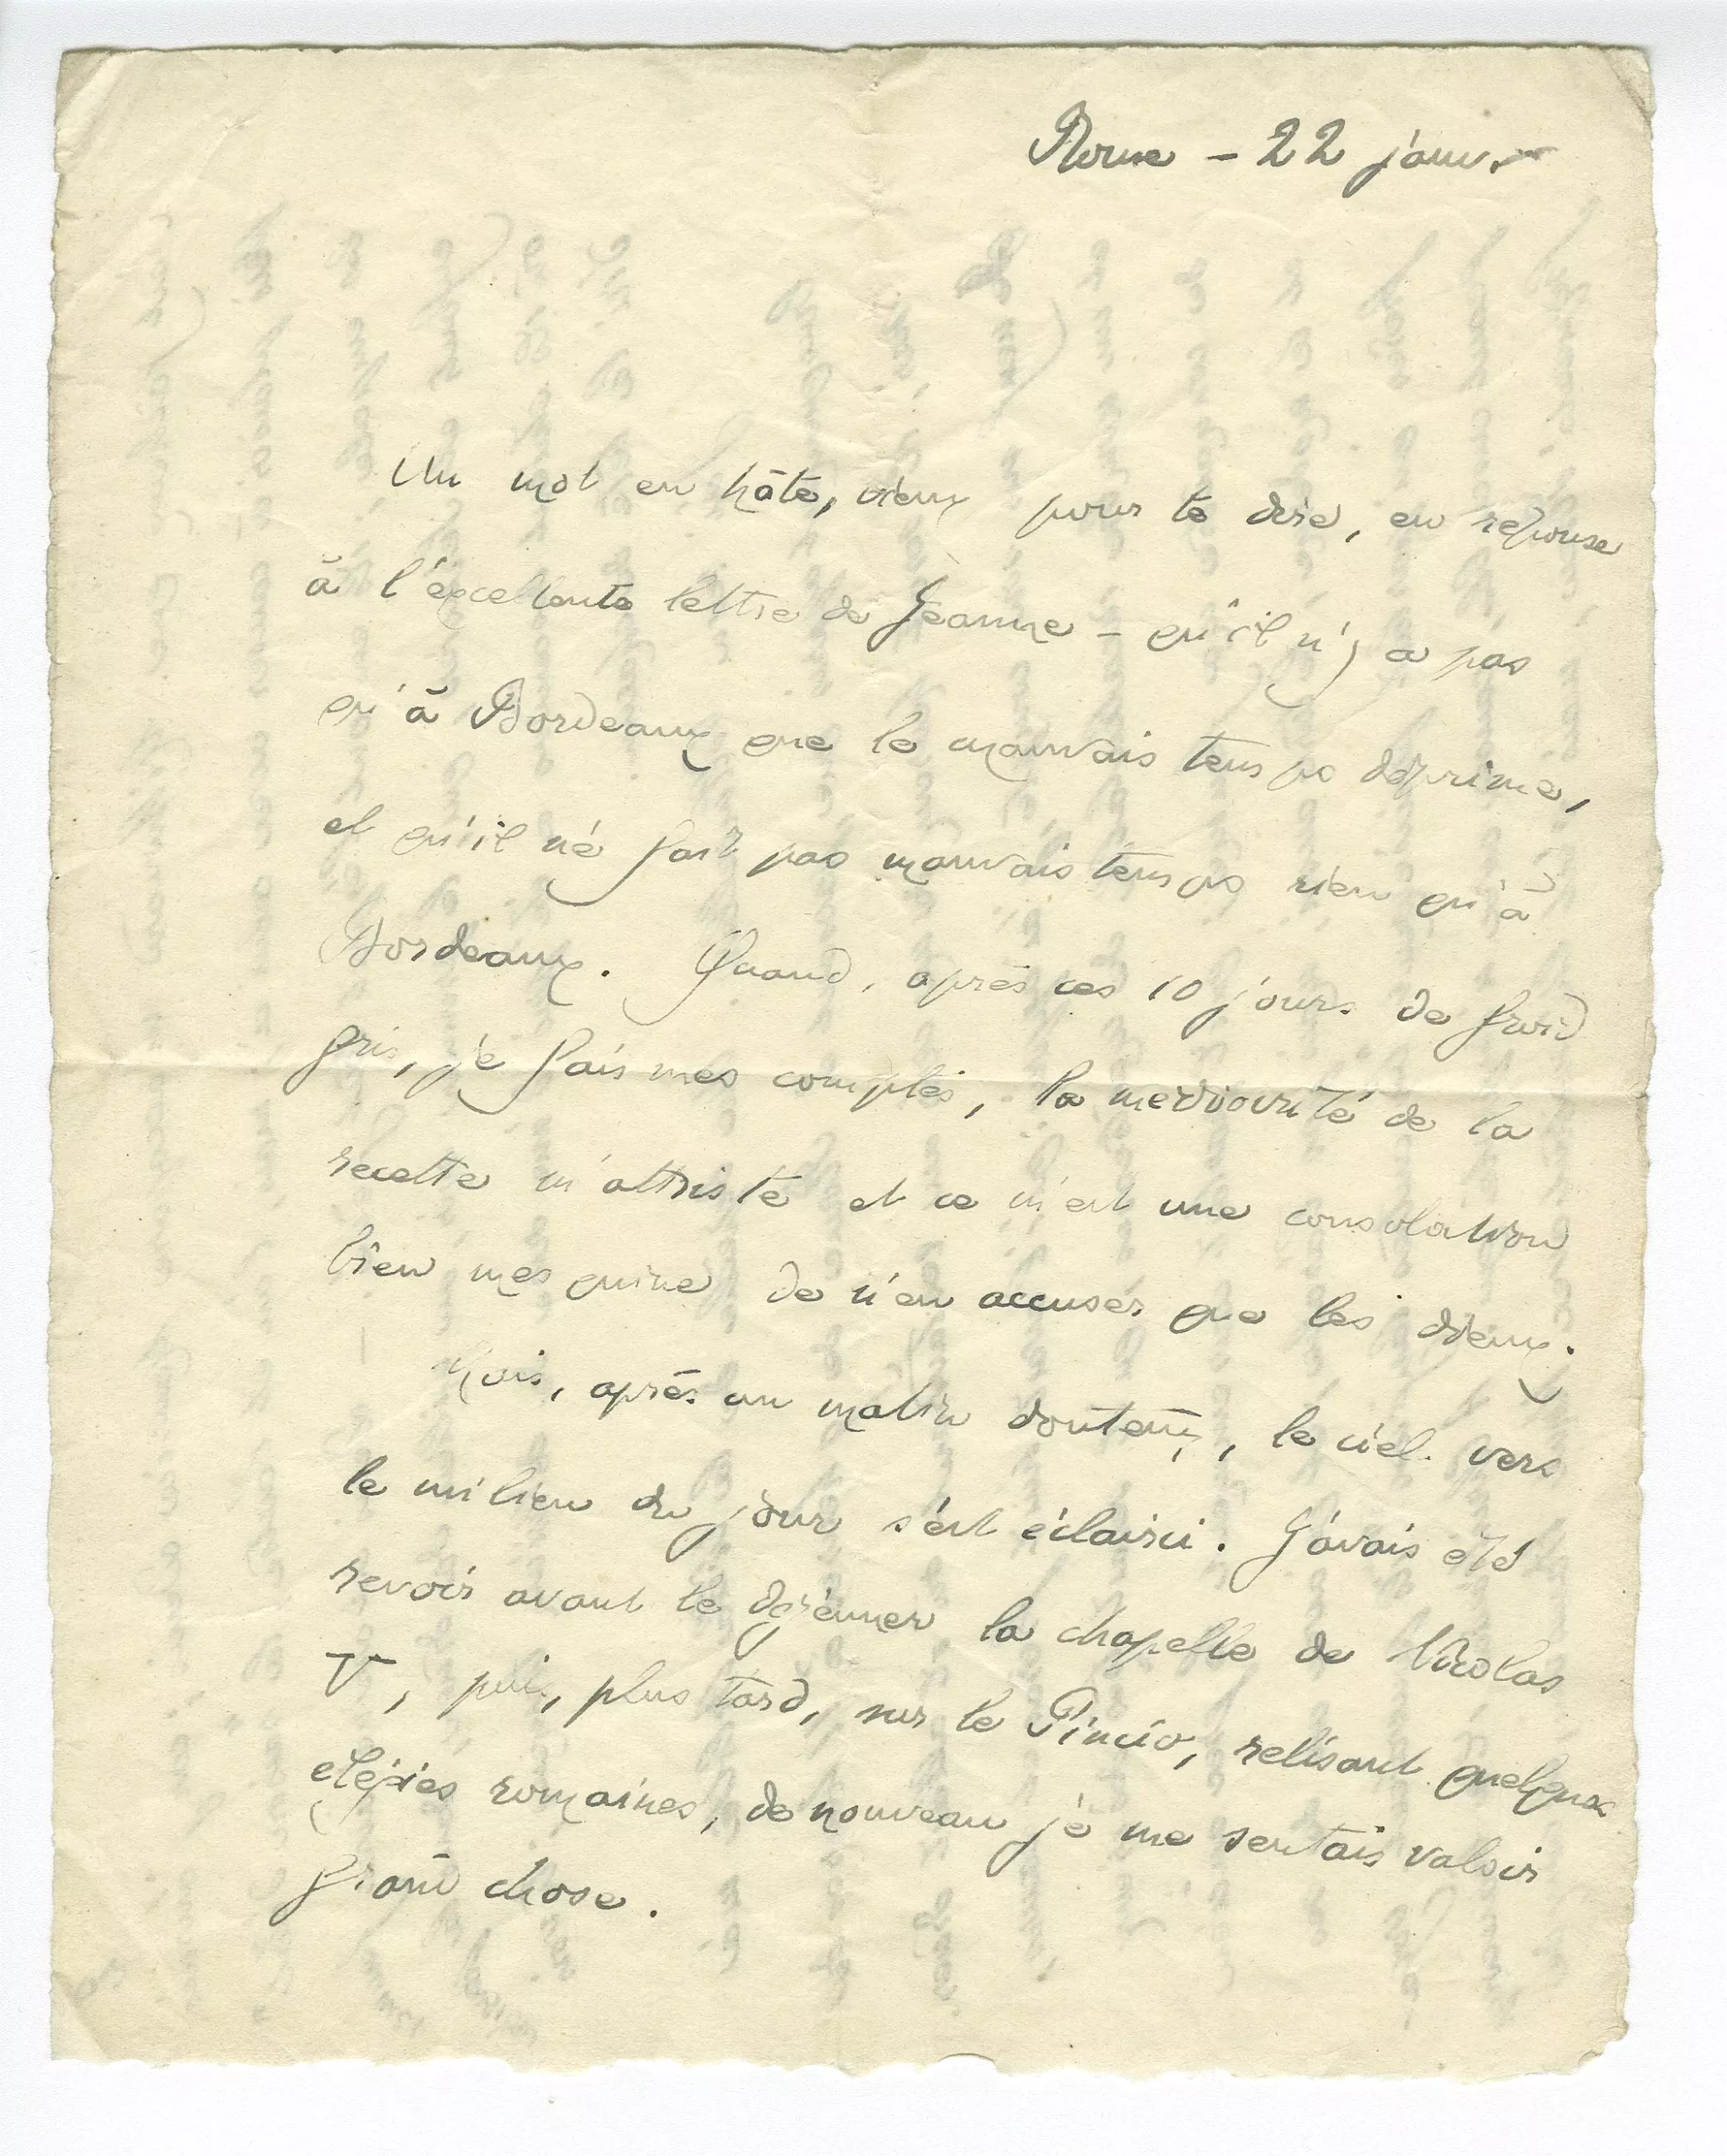 Rome – 22 janv.
Un mot en hâte, vieux pour te dire, en reponse
à l'excellente lettre de Jeanne – qu'il n'y a pas
qu'à Bordeaux que le mauvais temps déprime,
et qu'il ne fait pas mauvais temps rien qu'à
Bordeaux. Quand, après ces 10 jours de froid
gris, je fais mes comptes, la mediocrité de la
recette m'attriste et ce m'est une consolation
bien mesquine de n'en accuser que les dieux.
Mais, après un matin douteux, le ciel vers
le milieu du jour s'est éclairci. J'avais été
revoir avant le dejeuner la chapelle de Nicolas
V, puis, plus tard, sur le Pincio, relisant quelques
elégies romaines, de nouveau je me sentais valoir
grand chose.